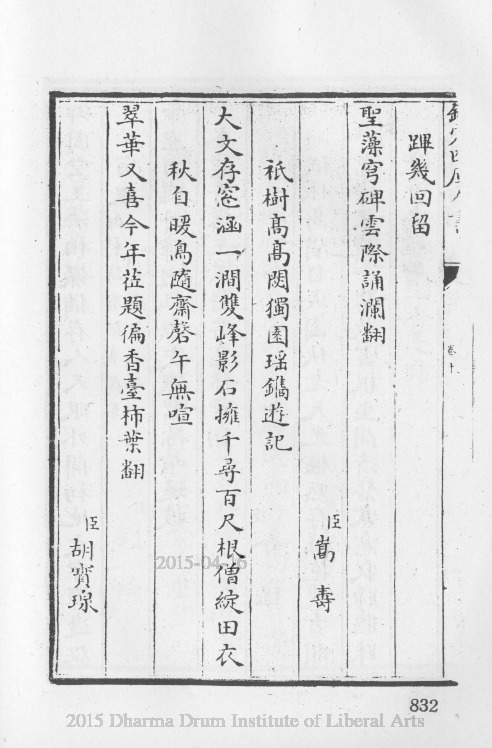 蹕幾回留
聖藻穹碑雲際誦瀾翻
臣嵩壽
祇樹高高閟獨園瑶鐫遊記
大文存窓涵一澗雙峰影石擁千尋百尺根僧綻田衣
秋自暖鳥隨齋磬午無喧
翠華又喜今年莅題徧香臺柿葉翻
臣胡寳瑔
卷十
2015-04-16
832
2015 Dharma Drum Institute of Liberal Arts